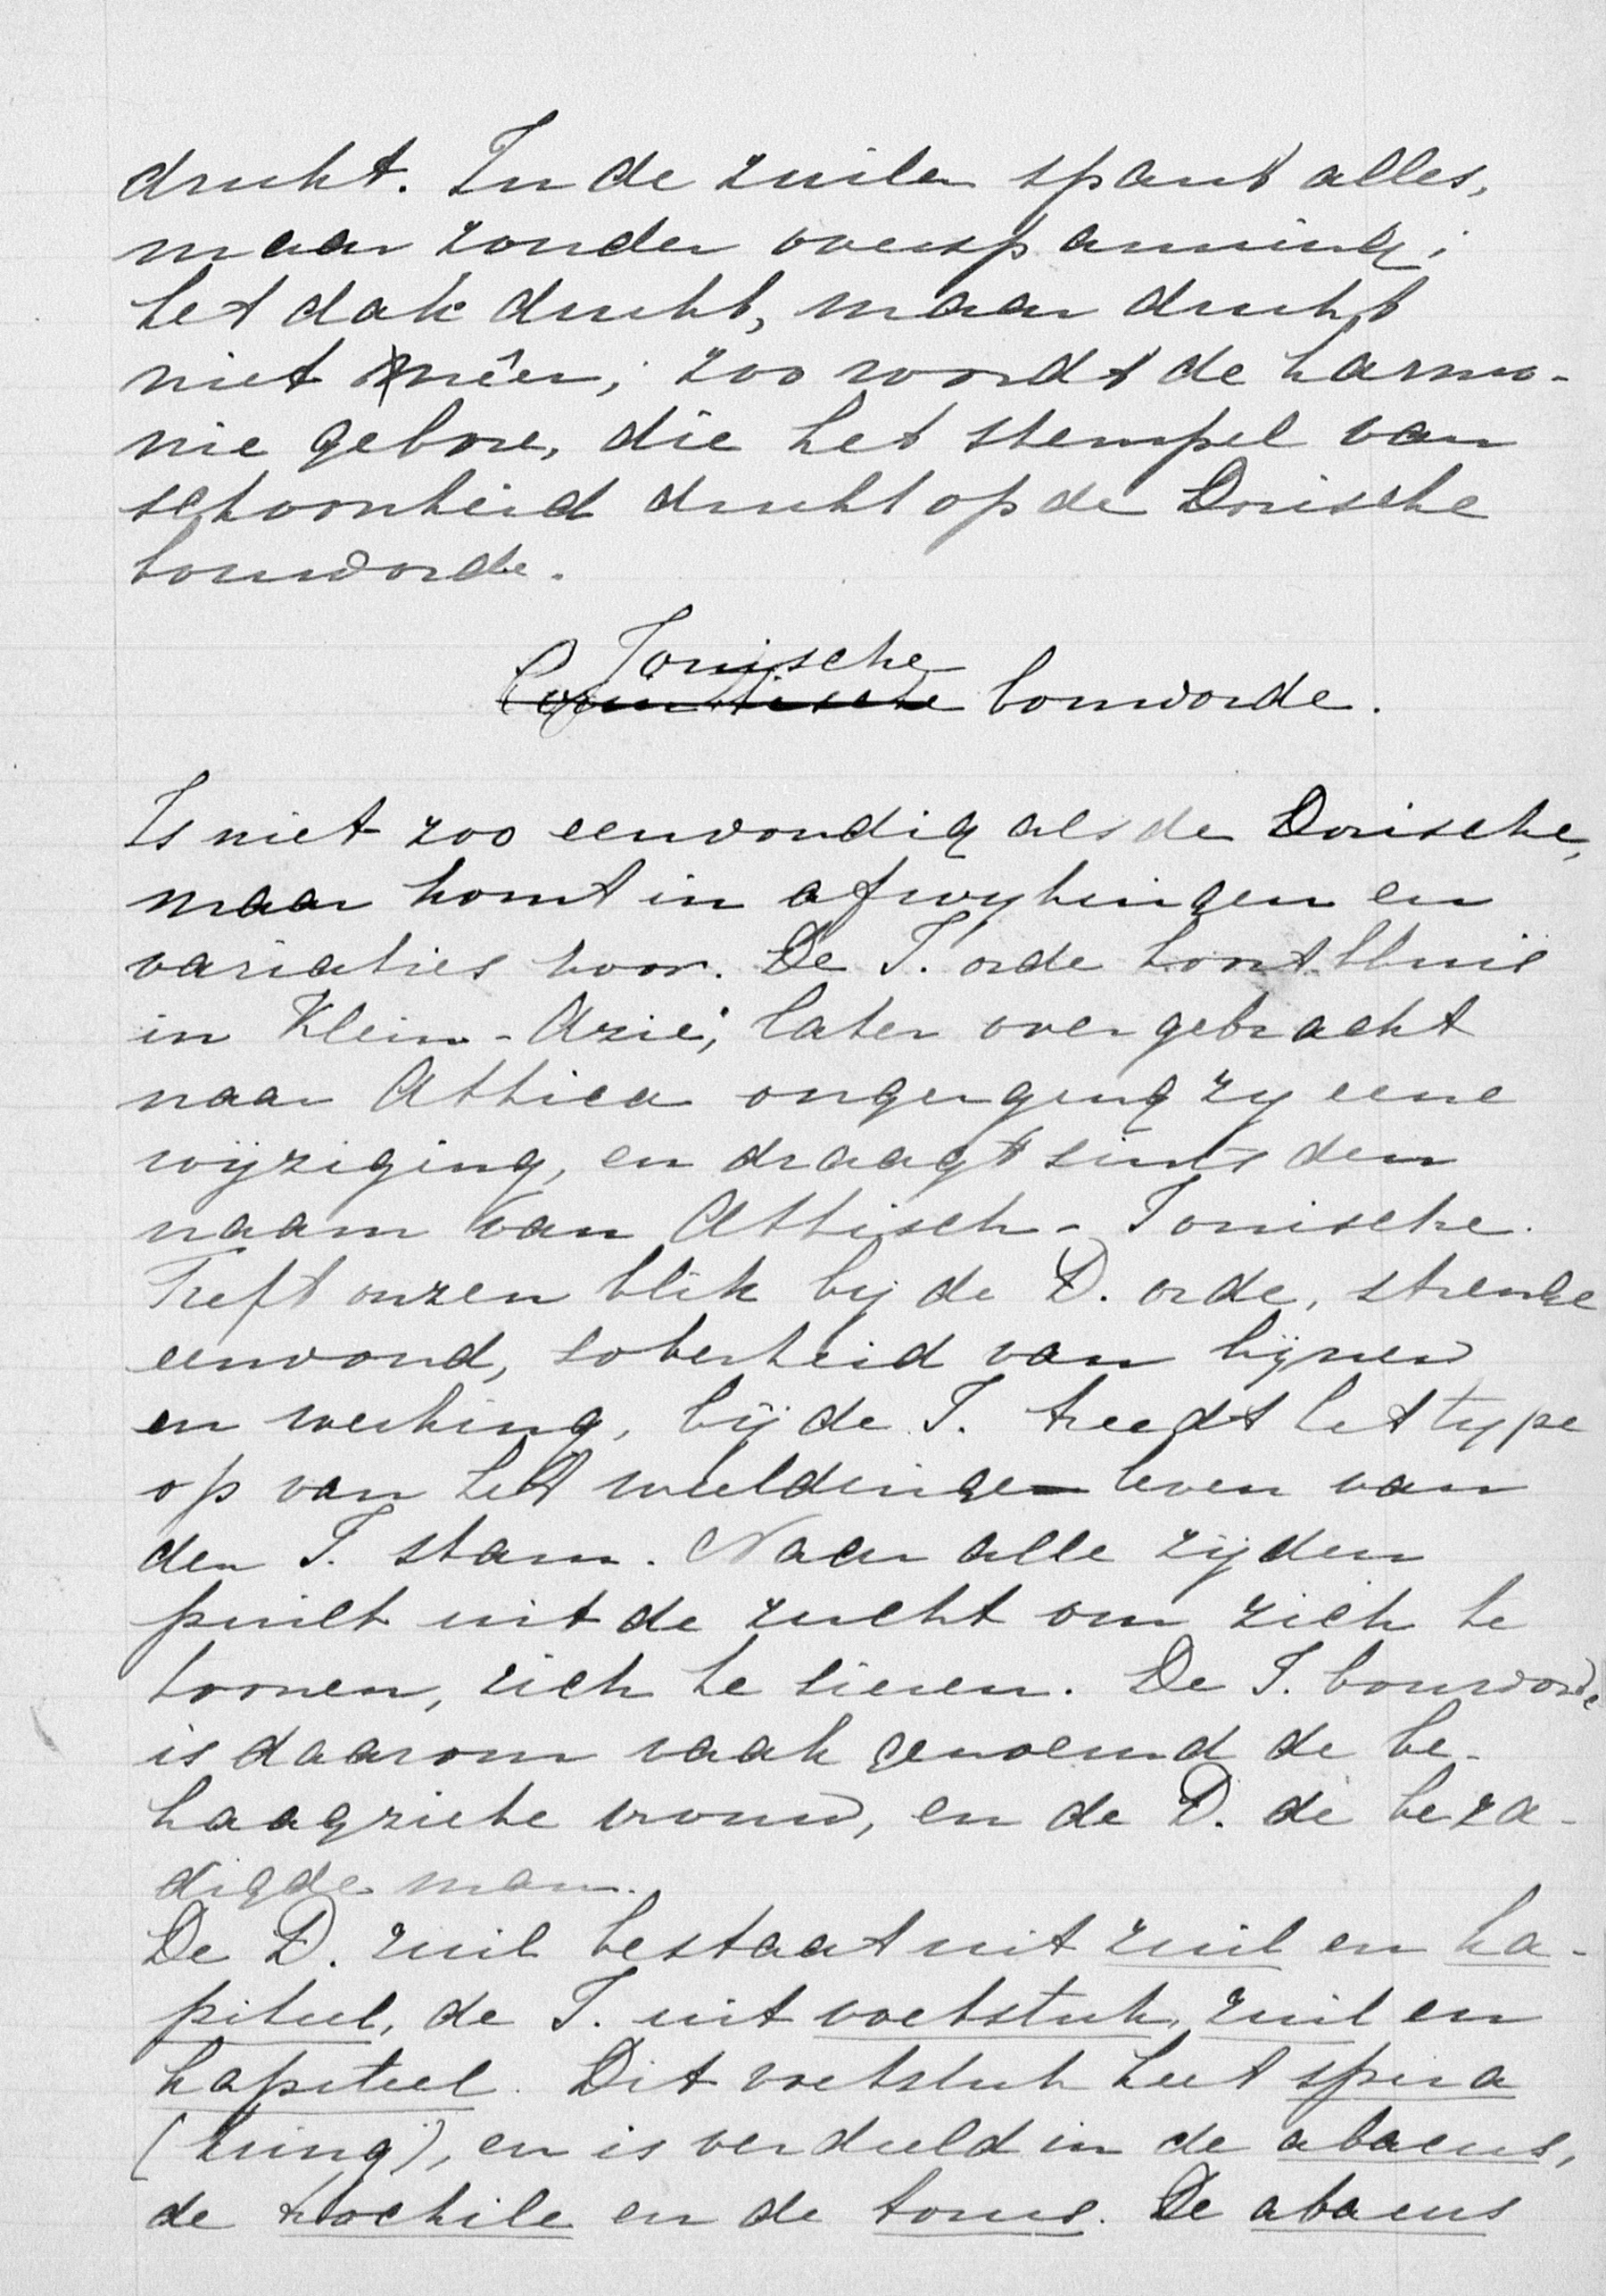 drukt. In de zuilen spant alles,
maar zonder overspanning;
het dak drukt, maar drukt
niet méér; zoo wordt de harmo-
nie gebore, die het stempel van
schoonheid drukt op de Dorische
bouworde.
Ionische
Corinthische bouworde.
Is niet zoo eenvoudig als de Dorische,
maar komt in afwykingen en
variaties voor. De I. orde hoort thuis
in Klein-Azië; later overgebracht
naar Attica ongerging zy eene
wijziging, en draagt sints den
naam van Attisch-Ionische.
Treft onzen blik bij de D. orde, strenge
eenvoud, soberheid van lijnen
en werking, bij de I. treedt het type
op van het weelderige leven van
den I. stam. Naar alle zijden
puilt uit de zucht om zich te
toonen, zich te sieren. De I. bouworde
is daarom vaak genoemd de be-
haagzieke vrouw, en de D. de beza-
digde man.
De D. zuil bestaat uit zuil en ka-
piteel, de I. uit voetstuk, zuil en
kapiteel. Dit voetstuk heet spira
(kring), en is verdeeld in de abacus,
de trochile en de torus. De abacus